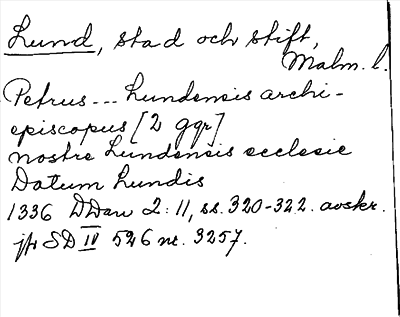 Lund, stad och stift,
Malm. l.
Petrus --- Lundensis archi-
episcopus [2 ggr]
nostre Lundensis ecclesie
Datum Lundis
1336 DDan 2:11, ss. 320-322. avskr.
jfr SD IV 526 nr. 3257.